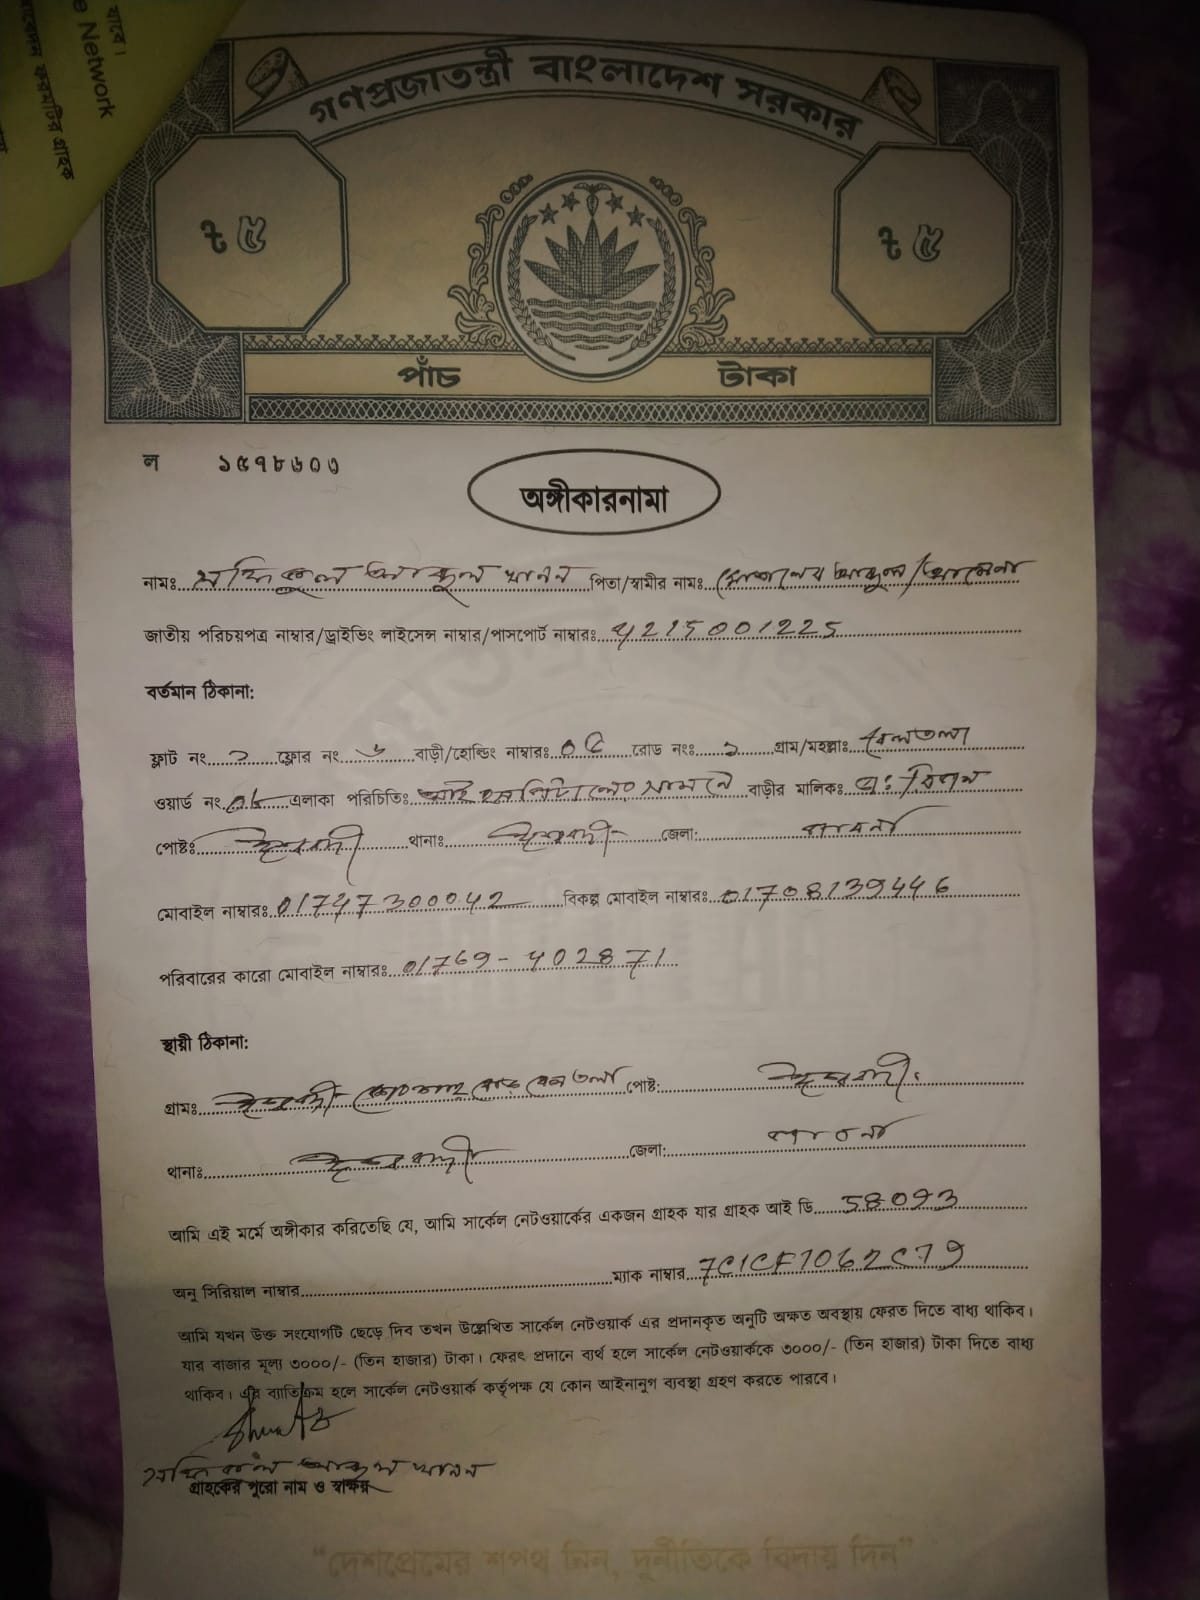 যাবে।
e Network
াবেদন ফরমটির গ্রাহক
গণপ্রজাতন্ত্রী বাংলাদেশ সরকার
৳ ৫ ৳ ৫
পাঁচ টাকা
ল ১৫৭৮৬০৩
অঙ্গীকারনামা
নামঃ পিতা/স্বামীর নামঃ
জাতীয় পরিচয়পত্র নাম্বার/ড্রাইভিং লাইসেন্স নাম্বার/পাসপোর্ট নাম্বারঃ 4215001225
বর্তমান ঠিকানা:
ফ্লাট নং ২ ফ্লোর নং ৬ বাড়ী/হোল্ডিং নাম্বারঃ রোড নং ১ গ্রাম/মহল্লাঃ বেলতলা
ওয়ার্ড নং এলাকা পরিচিতিঃ সামনে বাড়ীর মালিকঃ
পোষ্টঃ ঈশ্বরদী থানাঃ ঈশ্বরদী জেলা: পাবনা
মোবাইল নাম্বারঃ 01747300042 বিকল্প মোবাইল নাম্বারঃ 01708139446
পরিবারের কারো মোবাইল নাম্বারঃ 01769-402871
স্থায়ী ঠিকানা:
গ্রামঃ ঈশ্বরদী পোষ্ট: ঈশ্বরদী
থানাঃ ঈশ্বরদী জেলা: পাবনা
আমি এই মর্মে অঙ্গীকার করিতেছি যে, আমি সার্কেল নেটওয়ার্কের একজন গ্রাহক যার গ্রাহক আই ডি 58093
অনু সিরিয়াল নাম্বার ম্যাক নাম্বার 7C1CF1062C79
আমি যখন উক্ত সংযোগটি ছেড়ে দিব তখন উল্লেখিত সার্কেল নেটওয়ার্ক এর প্রদানকৃত অনুটি অক্ষত অবস্থায় ফেরত দিতে বাধ্য থাকিব।
যার বাজার মূল্য ৩০০০/- (তিন হাজার) টাকা। ফেরৎ প্রদানে ব্যর্থ হলে সার্কেল নেটওয়ার্ককে ৩০০০/- (তিন হাজার) টাকা দিতে বাধ্য
থাকিব। এর ব্যাতিক্রম হলে সার্কেল নেটওয়ার্ক কর্তৃপক্ষ যে কোন আইনানুগ ব্যবস্থা গ্রহণ করতে পারবে।
গ্রাহকের পুরো নাম ও স্বাক্ষর
“দেশপ্রেমের শপথ নিন, দুর্নীতিকে বিদায় দিন”